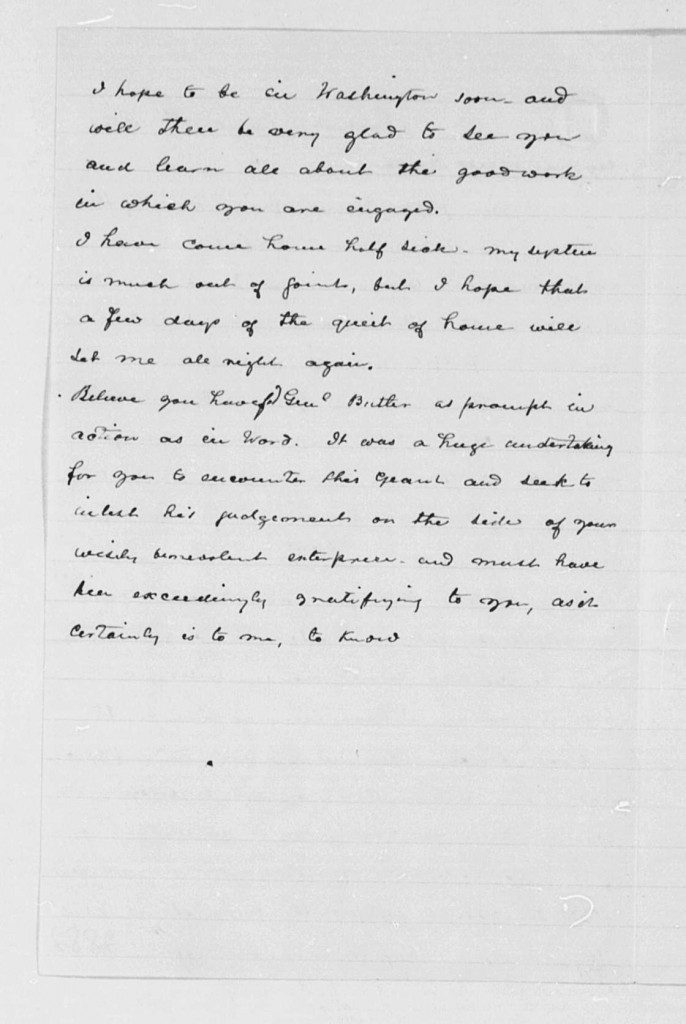 I hope to be in Washington soon - and
will then be very glad to see you
and learn all about the good work
in which you are engaged.
I have come home half sick - my system
is much out of joint, but I hope that
a few days of the quiet of home will
set me all right again.
Believe you have Genl Butler as prompt in
action as in word. It was a huge undertaking
for you to encounter this Giant and seek to
enlist his judgement on the side of your
wisely benevolent enterprise - and must have
been exceedingly gratifying to you, as it
certainly is to me, to know